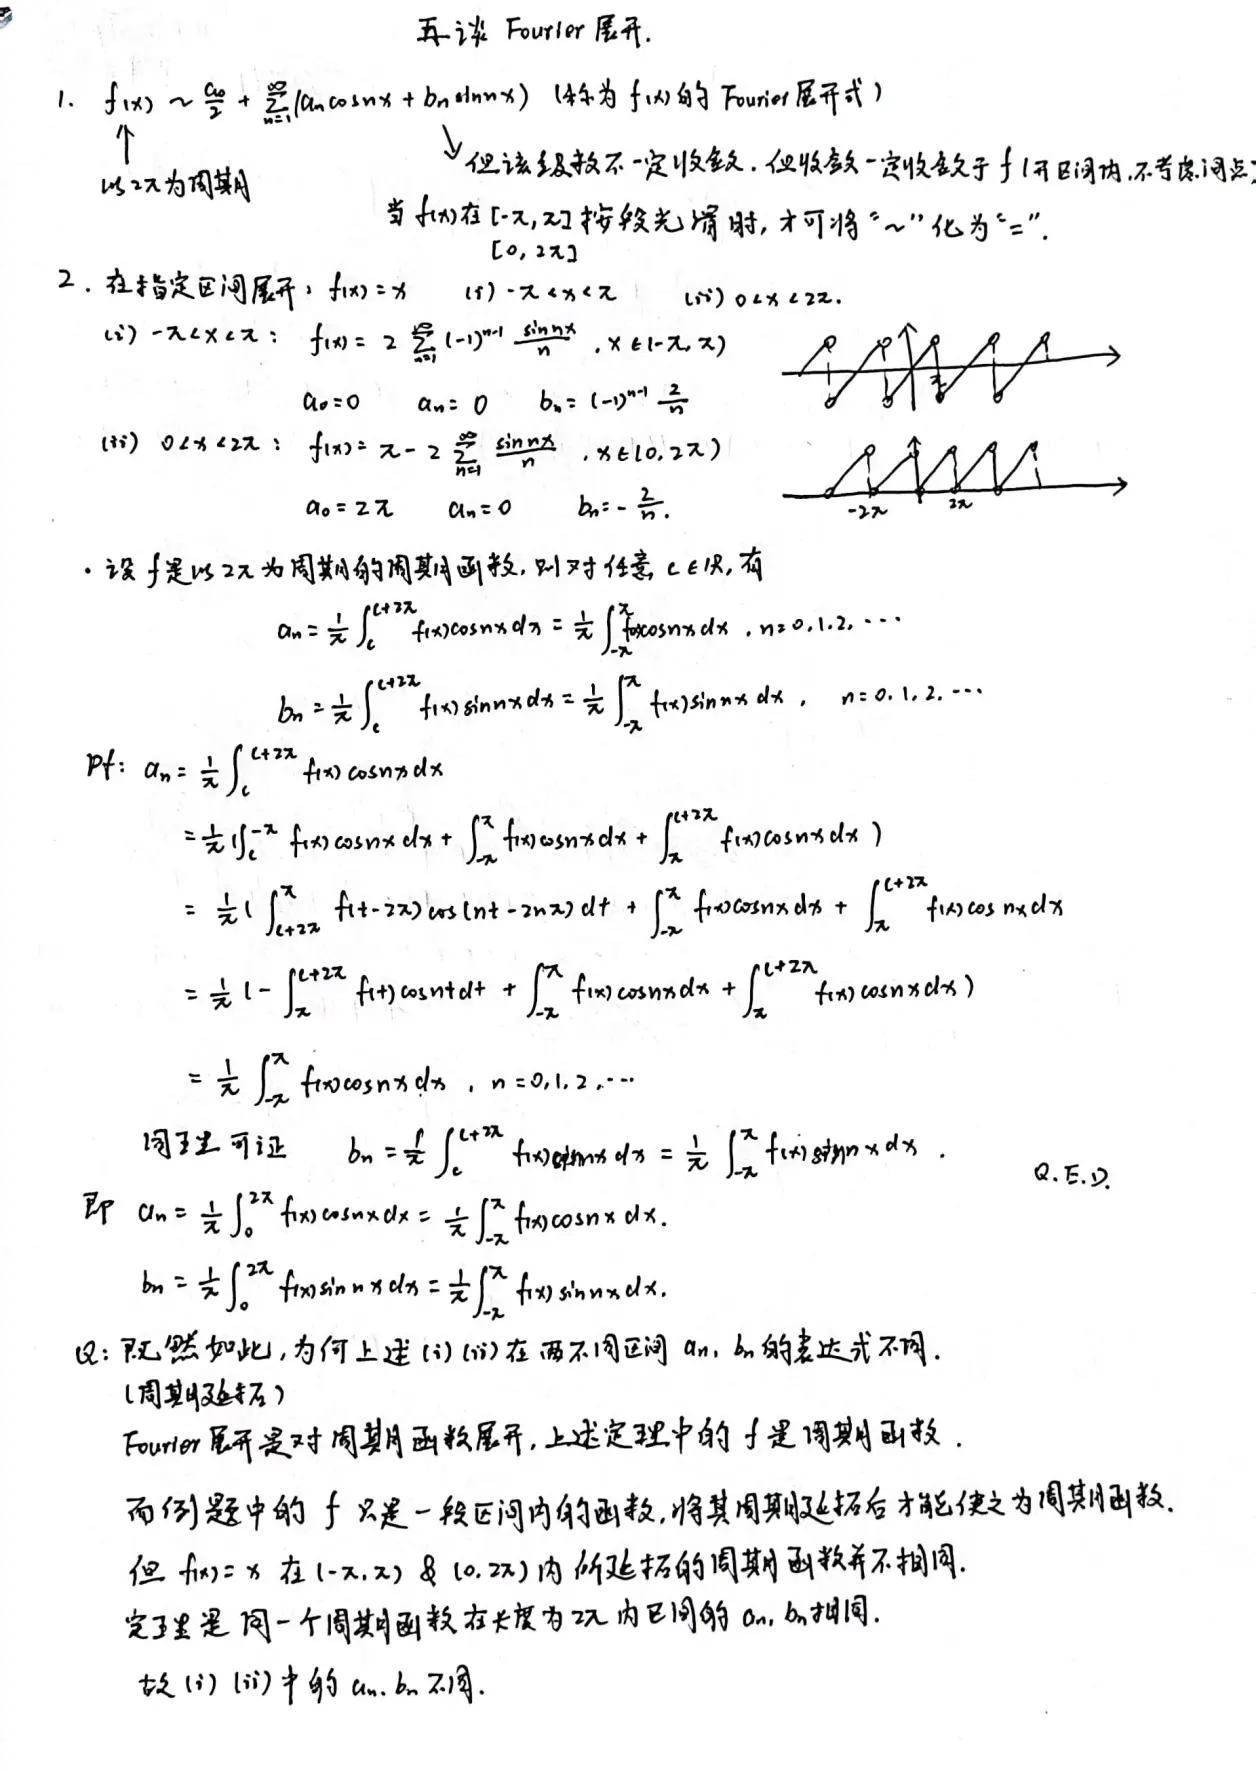 再谈 Fourier 展开.
1. f(x) ~ a₀/2 + ∑_{n=1}^{∞} (aₙcosnx + bₙsinnx) (称为 f(x) 的 Fourier 展开式)
↑
以2π为周期
↘ 但该级数不一定收敛. 但收敛一定收敛于 f (开区间内, 不考虑间点)
当 f(x) 在 [-π, π] 按段光滑时, 才可将 "~" 化为 "=".
[0, 2π]
2. 在指定区间展开: f(x) = x (i) -π < x < π (ii) 0 < x < 2π.
(i) -π < x < π : f(x) = 2 ∑_{n=1}^{∞} (-1)^{n-1} sin nx / n , x ∈ (-π, π)
π
a₀ = 0 aₙ = 0 bₙ = (-1)^{n-1} 2/n
(ii) 0 < x < 2π : f(x) = π - 2 ∑_{n=1}^{∞} sin nx / n , x ∈ (0, 2π)
a₀ = 2π aₙ = 0 bₙ = - 2/n.
-2π 2π
· 设 f 是以 2π 为周期的周期函数, 则对任意 c ∈ R, 有
aₙ = 1/π ∫_c^{c+2π} f(x)cosnx dx = 1/π ∫_{-π}^{π} f(x)cosnx dx , n = 0, 1, 2, ···
bₙ = 1/π ∫_c^{c+2π} f(x) sinnx dx = 1/π ∫_{-π}^{π} f(x) sinnx dx , n = 0, 1, 2, ···
Pf: aₙ = 1/π ∫_c^{c+2π} f(x) cosnx dx
= 1/π (∫_c^{-π} f(x) cosnx dx + ∫_{-π}^{π} f(x) cosnx dx + ∫_π^{c+2π} f(x) cosnx dx )
= 1/π ( ∫_{c+2π}^{π} f(t-2π) cos (nt - 2nπ) dt + ∫_{-π}^{π} f(x)cosnx dx + ∫_π^{c+2π} f(x) cos nx dx
= 1/π ( - ∫_π^{c+2π} f(t) cosnt dt + ∫_{-π}^{π} f(x) cosnx dx + ∫_π^{c+2π} f(x) cosnx dx )
= 1/π ∫_{-π}^{π} f(x)cosnx dx , n = 0, 1, 2, ···
同理可证 bₙ = 1/π ∫_c^{c+2π} f(x) sinnx dx = 1/π ∫_{-π}^{π} f(x) sinnx dx .
Q.E.D.
即 aₙ = 1/π ∫_0^{2π} f(x) cosnx dx = 1/π ∫_{-π}^{π} f(x) cosnx dx.
bₙ = 1/π ∫_0^{2π} f(x) sinnx dx = 1/π ∫_{-π}^{π} f(x) sinnx dx.
Q: 既然如此, 为何上述 (i) (ii) 在两不同区间 aₙ, bₙ 的表达式不同.
(周期延拓)
Fourier 展开是对周期函数展开, 上述定理中的 f 是周期函数.
而例题中的 f 只是一段区间内的函数, 将其周期延拓后才能使之为周期函数.
但 f(x) = x 在 (-π, π) & (0, 2π) 内所延拓的周期函数并不相同.
定理是同一个周期函数在长度为 2π 内区间的 aₙ, bₙ 相同.
故 (i) (ii) 中的 aₙ, bₙ 不同.